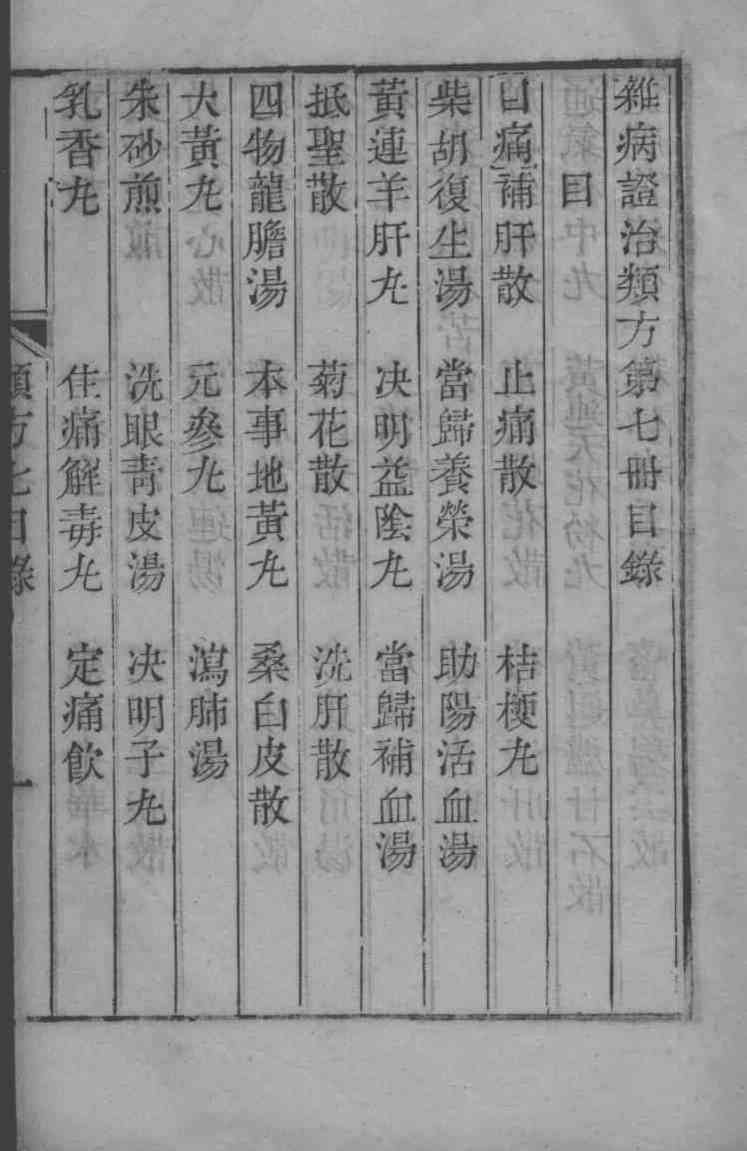 雜病證治類方第七冊目錄
目
目痛補肝散　止痛散　桔梗丸
柴胡復生湯　當歸養榮湯　助陽活血湯
黃連羊肝丸　决明益陰丸　當歸補血湯
抵聖散　菊花散　洗肝散
四物龍膽湯　本事地黃丸　桑白皮散
大黃丸　元參丸　瀉肺湯
朱砂煎　洗眼青皮湯　决明子丸
乳香丸　住痛解毒丸　定痛飲
類方七目錄　一